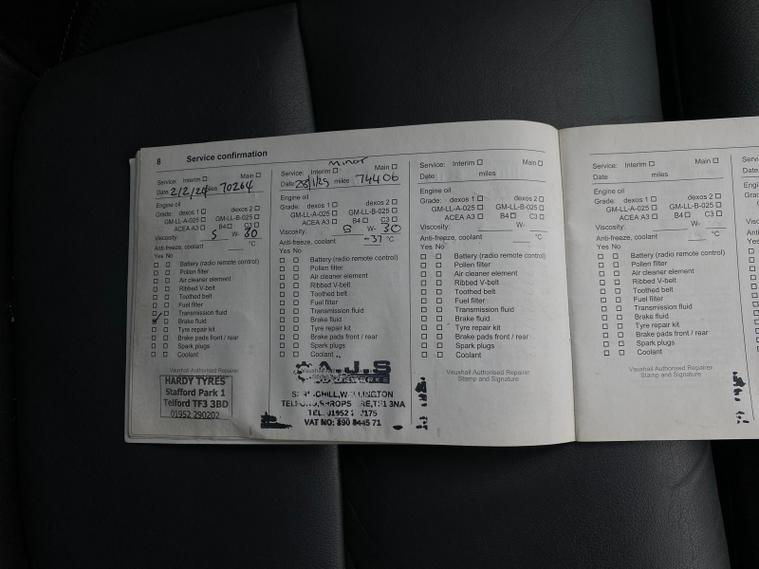 8 Service confirmation
Service: Interim Main
Date 2/2/24 miles 70264
Engine oil
Grade: dexos 1 dexos 2
GM-LL-A-025 GM-LL-B-025
ACEA A3 B4 C3
Viscosity: 5 W- 30
Anti-freeze, coolant °C
Yes No
Battery (radio remote control)
Pollen filter
Air cleaner element
Ribbed V-belt
Toothed belt
Fuel filter
Transmission fluid
Brake fluid
Tyre repair kit
Brake pads front / rear
Spark plugs
Coolant
Vauxhall Authorised Repairer
HARDY TYRES
Stafford Park 1
Telford TF3 3BD
01952 290202
Minor
Service: Interim Main
Date miles 74406
Engine oil
Grade: dexos 1 dexos 2
GM-LL-A-025 GM-LL-B-025
ACEA A3 B4 C3
Viscosity: 5 W- 30
Anti-freeze, coolant -37 °C
Yes No
Battery (radio remote control)
Pollen filter
Air cleaner element
Ribbed V-belt
Toothed belt
Fuel filter
Transmission fluid
Brake fluid
Tyre repair kit
Brake pads front / rear
Spark plugs
Coolant
A.J.S
TEL. 01952
VAT NO: 890 8445 71
Service: Interim Main
Date miles
Engine oil
Grade: dexos 1 dexos 2
GM-LL-A-025 GM-LL-B-025
ACEA A3 B4 C3
Viscosity: W-
Anti-freeze, coolant °C
Yes No
Battery (radio remote control)
Pollen filter
Air cleaner element
Ribbed V-belt
Toothed belt
Fuel filter
Transmission fluid
Brake fluid
Tyre repair kit
Brake pads front / rear
Spark plugs
Coolant
Vauxhall Authorised Repairer
Stamp and Signature
Service: Interim Main
Date miles
Engine oil
Grade: dexos 1 dexos 2
GM-LL-A-025 GM-LL-B-025
ACEA A3 B4 C3
Viscosity: W-
Anti-freeze, coolant °C
Yes No
Battery (radio remote control)
Pollen filter
Air cleaner element
Ribbed V-belt
Toothed belt
Fuel filter
Transmission fluid
Brake fluid
Tyre repair kit
Brake pads front / rear
Spark plugs
Coolant
Vauxhall Authorised Repairer
Stamp and Signature